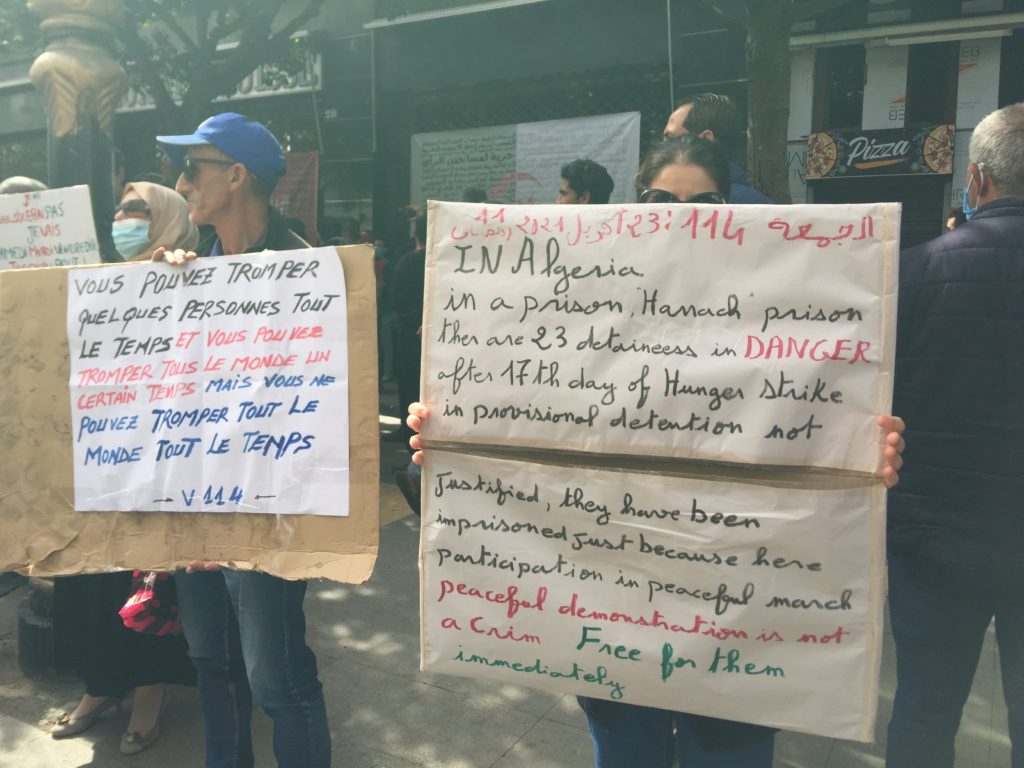 JE VAIS
VOUS POUVEZ TROMPER
QUELQUES PERSONNES TOUT
LE TEMPS ET VOUS POUVEZ
TROMPER TOUS LE MONDE UN
CERTAIN TEMPS MAIS VOUS NE
POUVEZ TROMPER TOUT LE
MONDE TOUT LE TEMPS
→ V 114 ←
الجمعة 114 : 23 أفريل 2021 11 رمضان
IN Algeria
in a prison, "Harrach" prison
ther are 23 detaineess in DANGER
after 17th day of Hunger strike
in provisional detention not
justified, they have been
imprisoned just because here
participation in peaceful march
peaceful demonstration is not
a Crim Free for them
immediately
Pizza